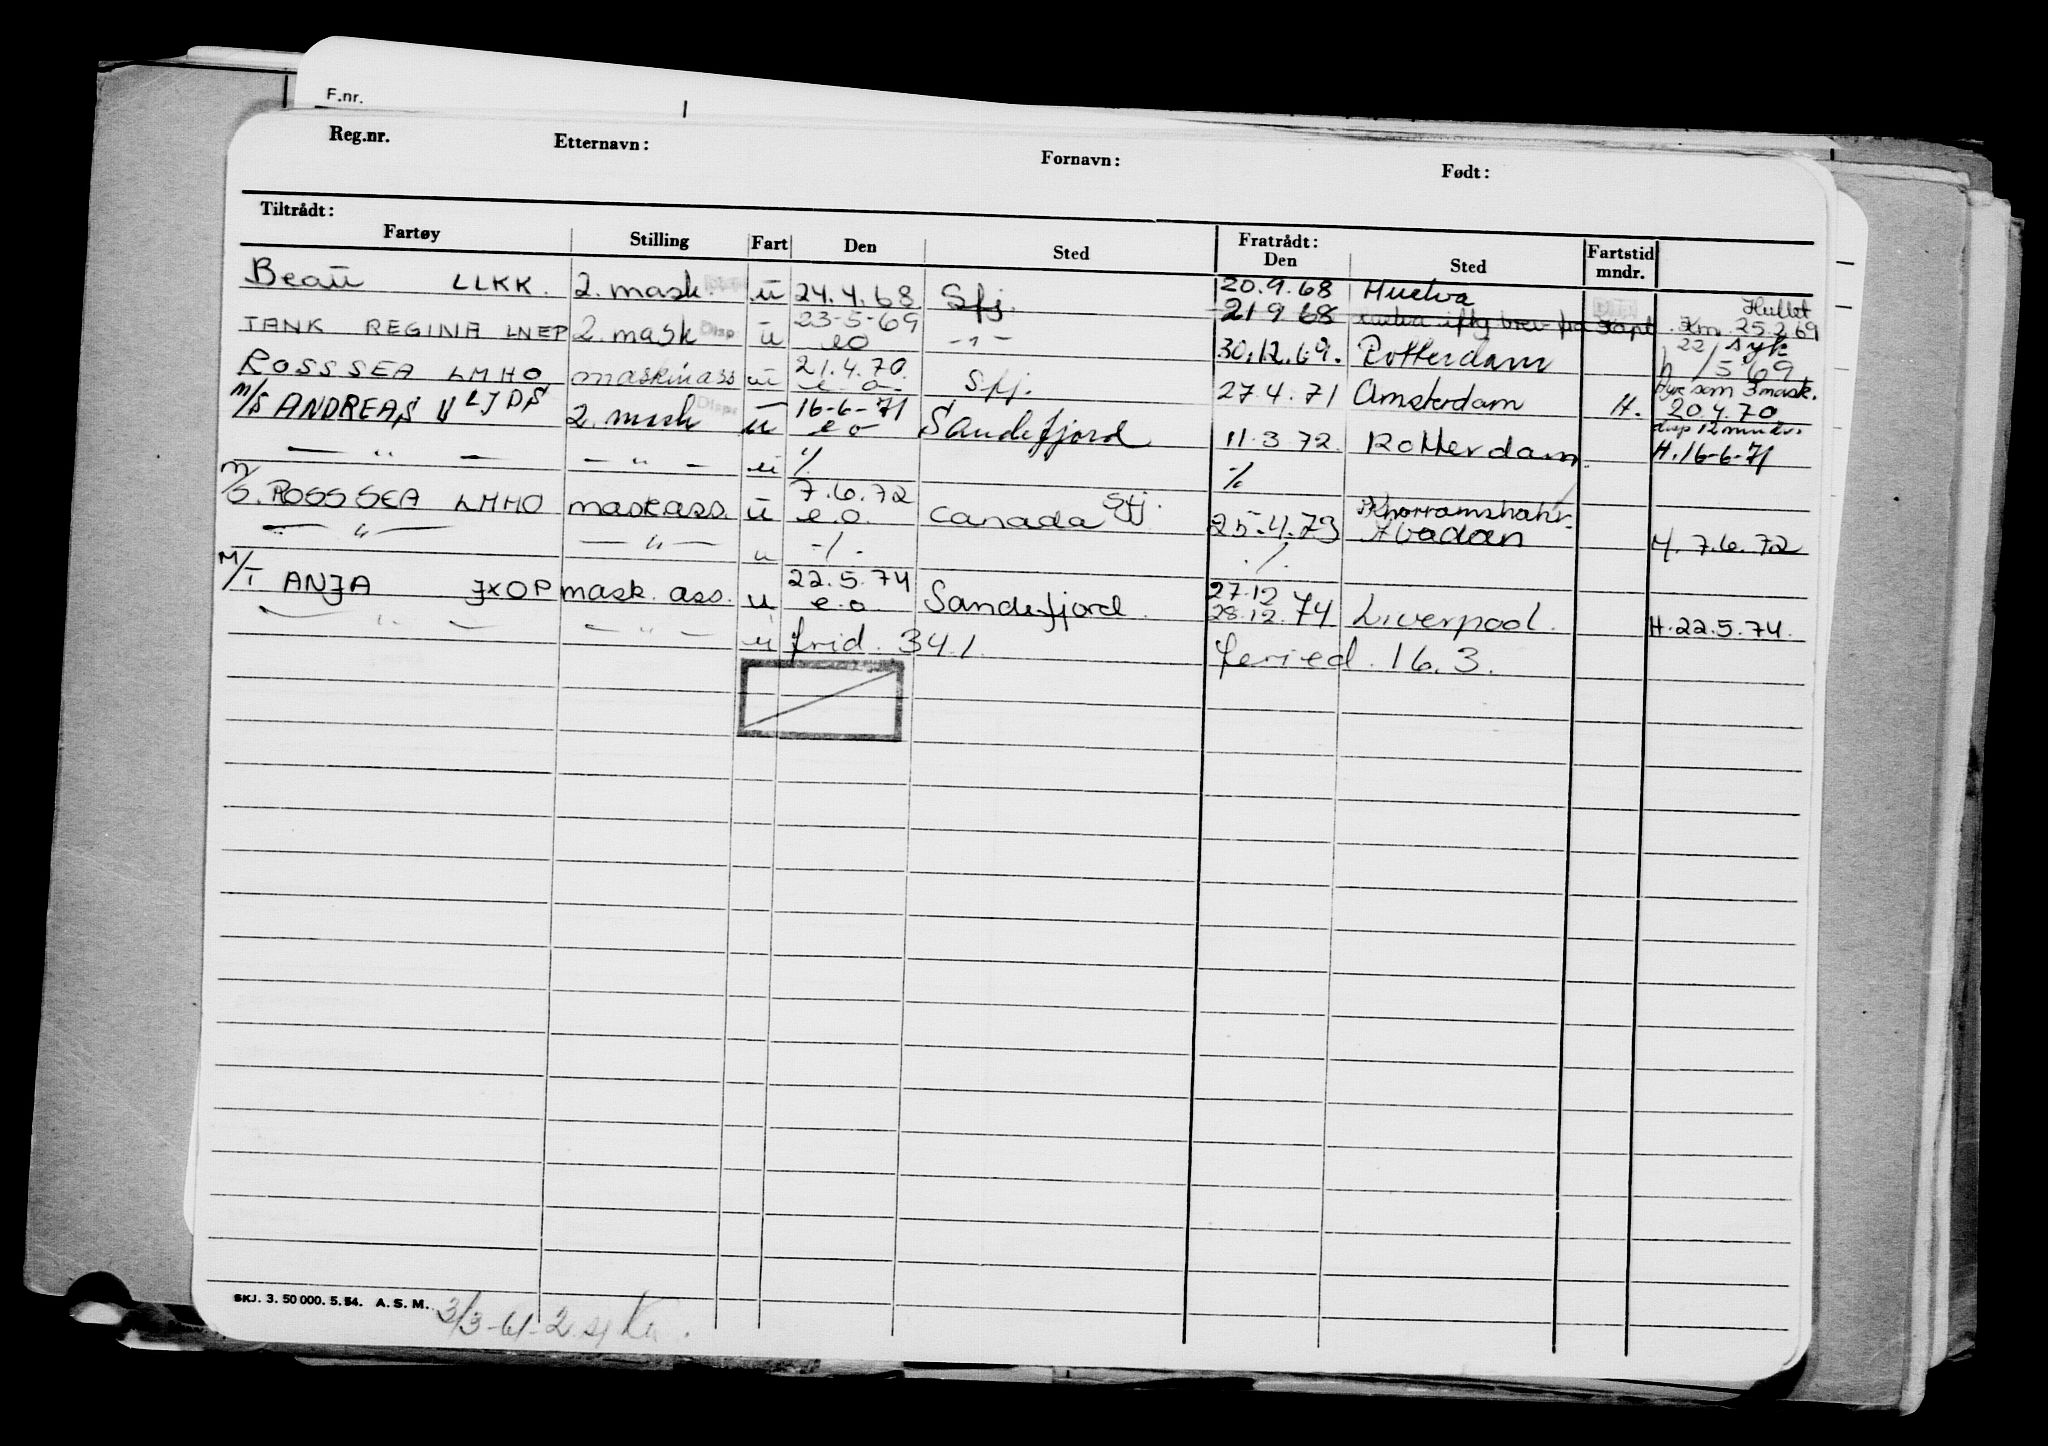 F.nr.
Reg.nr. Etternavn: Fornavn: Født:
Tiltrådt: Fratrådt:
Fartøy Stilling Fart Den Sted Den Sted Fartstid mndr.
Beau LLKK. 2. mask. u 24.4.68 Sfj. 20.9.68 Huelva Hullet
21 9 68 Kapt. Km. 25.2.69
TANK REGINA LNEP 2. mask Disp. u 23-5-69 eo -"- 30.12.69. Rotterdam 22/ syk
h /5 69
ROSSSEA LMHO maskinass u 21.4.70. e.o. Sfj. 27.4.71 Amsterdam H. Hyr som 3 mask. 20.4.70
M/S ANDREAS V LJDS 2. mask Disp. u 16-6-71 eo Sandefjord 11.3.72. Rotterdam. disp 12 mndr. H.16-6-71
— " — — " — u % %
M/S. ROSSSEA LMHO mask ass. u 7.6.72 e.o. Canada Sfj. 25.4.73 Khorramshahr Abadan H. 7.6.72
— " — — " — u -/. ./.
M/T ANJA JXOP mask. ass. u 22.5.74 e.o. Sandefjord. 27.12 28.12.74 Liverpool. H.22.5.74.
— " — — " — u frid. 34.1 feried. 16.3.
SKJ. 3. 50 000. 5. 54. A. S. M. 3/3-61-2